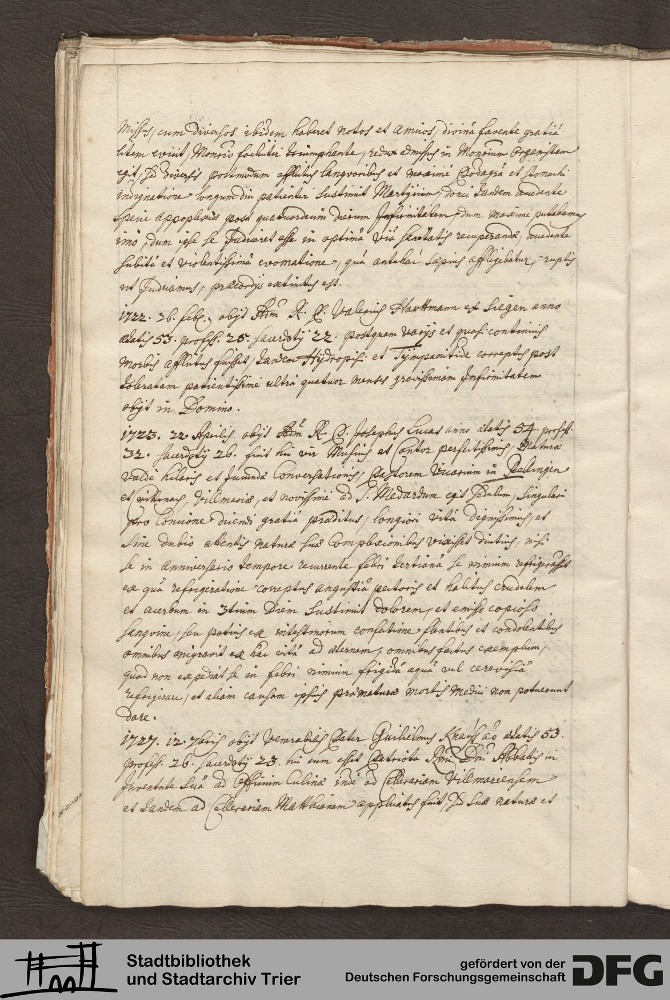 missus, cum diversos ibidem haberet notos et amicos, divina favente gratia
litem evicit, Monrio feliciter triumphante, redux admissus in Monrium Organistam
egit, sed diversis postmodum afflictus languoribus et maxime Podagra et stomachi
indignatione longum diu patienter sustinuit Martyrium, donec tandem accedente
specie appoplexiae post quatuordecim dierum infirmitatem, dum maxime putabamus
imo, dum ipse se judicaret esse in optima via sanitatis recuperandae, accedente
subita et violentissima evomatione, qua antehac saepius affligebatur, ruptis
ut judicamus, praecordiis extinctus est.
1722. 26. feb. obijt Adm. R. P. Valerius Hartmann ex Siegen anno
aetatis 53. profess. 25. sacerdotij 22. postquam varijs et quasi continuis
morbis afflictus fuisset, tandem Hydropisi et Tympanitide correptus post
toleratam patientissime ultra quatuor menses gravissimam infirmitatem
obijt in Domino.
1723. 22. Aprilis obijt Adm R. P. Josephus Lucas anno aetatis 54. profess.
32. sacerdotij 26. fuit hic vir Musicus et Cantor perfectissimus, Natura
valde hilaris et jucundae Conversationis, Pastorem Vicarium in
et Villmariae, et novissime ad S. Medardum egit sedulum, singulari
pro Concione dicendi gratia praeditus, longiori vita dignissimus, et
sine dubio attentis naturae suae complexionibus vixisset diutius, nisi
se in anniversario tempore recurrente febri tertiana se nimium refrigerasset
ex qua refrigeratione correptus angustia pectoris et halitus crudelem
et acerbum in 3tium Diem sustinuit dolorem, et emisso copioso
sanguine, seu potius ex intestinorum confectione flentibus et condolentibus
omnibus migravit ex hac vita ad aeternam, omnibus factus exemplum,
quod non expediat se in febri nimium frigida aqua vel cerevisia
refrigerare, et aliam causam ipsius praematurae mortis Medici non potuerunt
dare.
1727. 12. 7bris obijt Venerabilis Pater Guilielmus Kraus ao aetatis 53.
profess. 26. sacerdotij 23. hic cum esset Patriota Rmi Dni Abbatis in
juventute sua ad officium Culinae inde ad Cellerariam Villmariensem
et tandem ad Cellerariam Matthianam applicatus fuit, sed suae naturae et
Stadtbibliothek
und Stadtarchiv Trier
gefördert von der
Deutschen Forschungsgemeinschaft
DFG